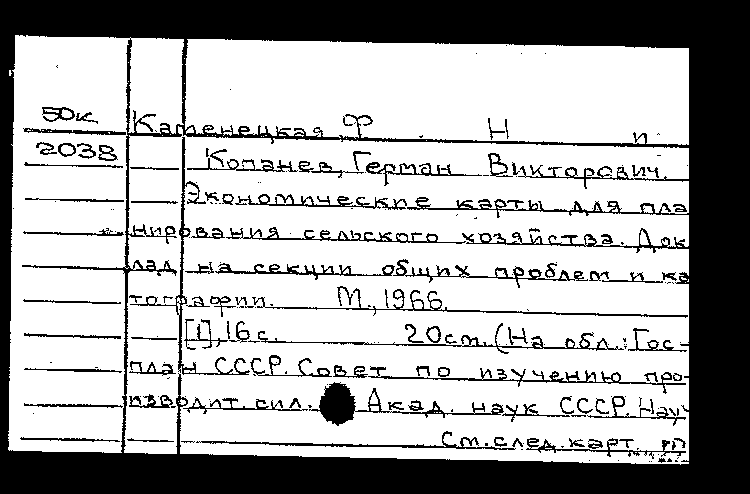 50к
Каменецкая, Ф. Н и
2038
Копанев, Герман Викторович.
Экономические карты для пла
нирования сельского хозяйства. Док
лад на секции общих проблем и ка
тографии. М., 1966.
[1], 16 с. 20см. (На обл.: Гос-
план СССР. Совет по изучению про-
изводит. сил. Акад. наук СССР. Науч
См. след. карт.